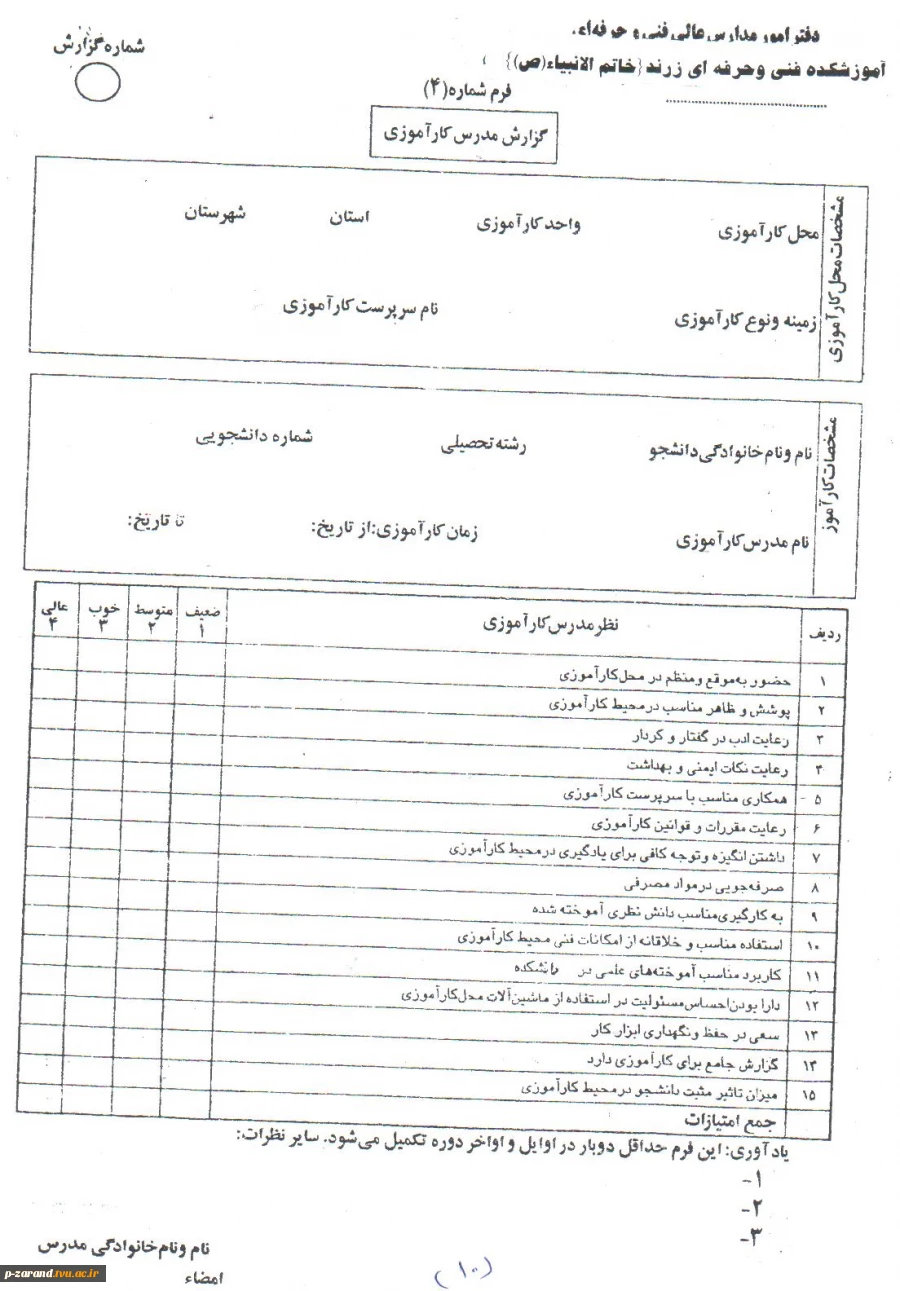 دفتر امور مدارس عالی فنی و حرفه‌ای.
آموزشکده فنی وحرفه ای زرند{خاتم الانبیاء(ص)}
شماره گزارش
فرم شماره(۴)
گزارش مدرس کارآموزی
مشخصات محل کارآموزی
محل کارآموزی واحد کارآموزی استان شهرستان
زمینه ونوع کارآموزی نام سرپرست کارآموزی
مشخصات کارآموز
نام ونام خانوادگی دانشجو رشته تحصیلی شماره دانشجویی
نام مدرس کارآموزی زمان کارآموزی:از تاریخ: تا تاریخ:
ردیف نظر مدرس کارآموزی ضعیف ۱ متوسط ۲ خوب ۳ عالی ۴
۱ حضور به‌موقع ومنظم در محل کارآموزی
۲ پوشش و ظاهر مناسب درمحیط کارآموزی
۳ رعایت ادب در گفتار و کردار
۴ رعایت نکات ایمنی و بهداشت
۵ همکاری مناسب با سرپرست کارآموزی
۶ رعایت مقررات و قوانین کارآموزی
۷ داشتن انگیزه وتوجه کافی برای یادگیری درمحیط کارآموزی
۸ صرفه‌جویی درمواد مصرفی
۹ به کارگیری‌مناسب دانش نظری آموخته شده
۱۰ استفاده مناسب و خلاقانه از امکانات فنی محیط کارآموزی
۱۱ کاربرد مناسب آموخته‌های علمی در دانشکده
۱۲ دارا بودن‌احساس‌مسئولیت در استفاده از ماشین‌آلات محل‌کارآموزی
۱۳ سعی در حفظ ونگهداری ابزار کار
۱۴ گزارش جامع برای کارآموزی دارد
۱۵ میزان تاثیر مثبت دانشجو درمحیط کارآموزی
جمع امتیازات
یادآوری: این فرم حداقل دوبار در اوایل و اواخر دوره تکمیل می‌شود. سایر نظرات:
۱-
۲-
۳-
نام ونام خانوادگی مدرس
امضاء
(۱۰)
p-zarand.tvu.ac.ir